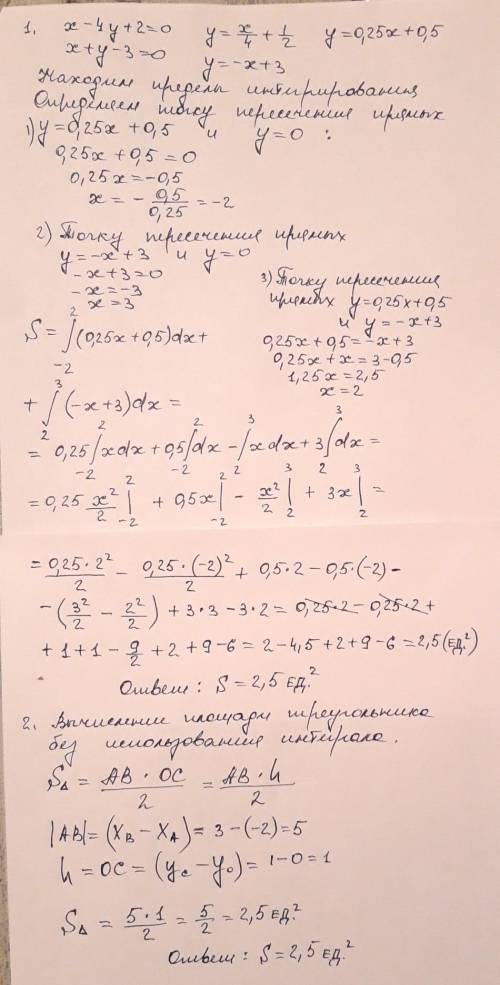 1. x - 4y + 2 = 0   y = x/4 + 1/2   y = 0,25x + 0,5
x + y - 3 = 0   y = -x + 3
Находим пределы интегрирования
Определяем точку пересечения прямых
1) y = 0,25x + 0,5 и y = 0 :
0,25x + 0,5 = 0
0,25x = -0,5
x = - 0,5/0,25 = -2
2) Точку пересечения прямых
y = -x + 3 и y = 0
-x + 3 = 0
-x = -3
x = 3
3) Точку пересечения
прямых y = 0,25x + 0,5
и y = -x + 3
0,25x + 0,5 = -x + 3
0,25x + x = 3 - 0,5
1,25x = 2,5
x = 2
S = ∫_{-2}^{2} (0,25x + 0,5)dx +
+ ∫_{2}^{3} (-x + 3)dx =
= 0,25 ∫_{-2}^{2} xdx + 0,5 ∫_{-2}^{2} dx - ∫_{2}^{3} xdx + 3 ∫_{2}^{3} dx =
= 0,25 x²/2 |_{-2}^{2} + 0,5x |_{-2}^{2} - x²/2 |_{2}^{3} + 3x |_{2}^{3} =
= 0,25·2²/2 - 0,25·(-2)²/2 + 0,5·2 - 0,5·(-2) -
- (3²/2 - 2²/2) + 3·3 - 3·2 = 0,25·2 - 0,25·2 +
+ 1 + 1 - 9/2 + 2 + 9 - 6 = 2 - 4,5 + 2 + 9 - 6 = 2,5 (ед.²)
Ответ : S = 2,5 ед.²
2. Вычислении площади треугольника
без использования интеграла.
S△ = AB · OC/2 = AB · h/2
|AB| = (x_B - x_A) = 3 - (-2) = 5
h = OC = (y_c - y_0) = 1 - 0 = 1
S△ = 5·1/2 = 5/2 = 2,5 ед.²
Ответ : S = 2,5 ед.²